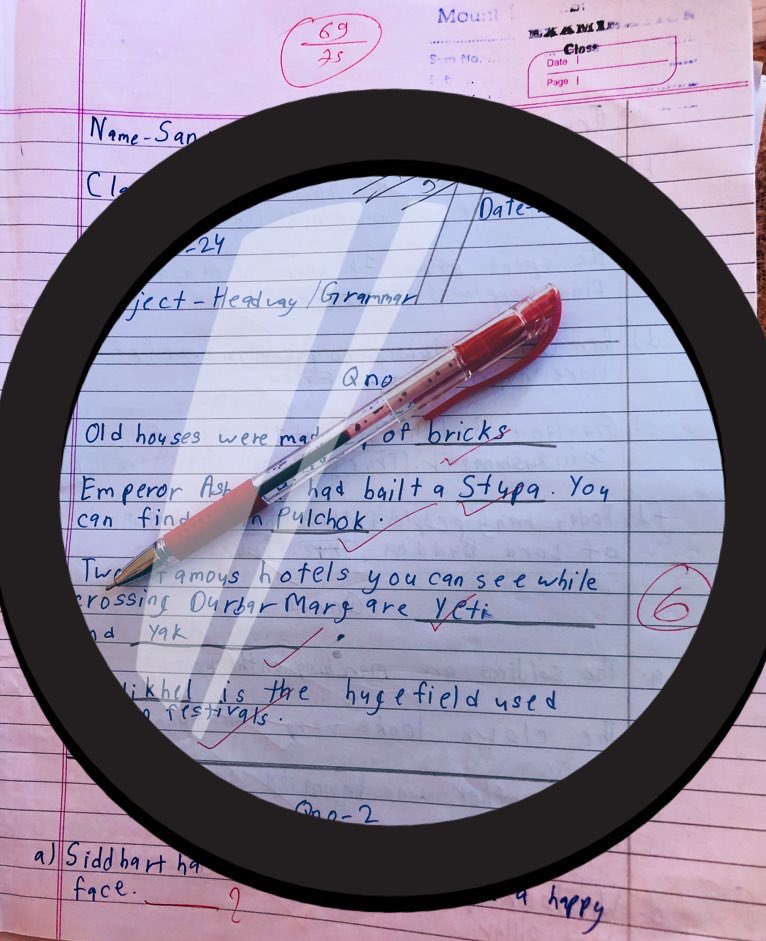 69
75
Mount
EXAMI
Class
Date
Page
Name-San
Cla
Date-
-24
ject-Headway/Grammar
Qno
Old houses were mad of bricks
Emperor Ash had bailt a Stupa. You
can find n Pulchok.
Two famous hotels you can see while
crossing Durbar Marg are Yeti
nd Yak
likhel is the huge field used
o festivals.
6
Qno-2
a) Siddhart ha a happy
face. ?